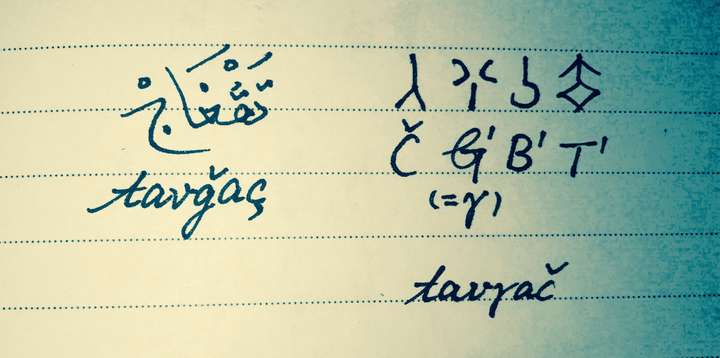 تَڤْغَاجْ
tavğaç
𐱃𐰉𐰍𐰲
Č G' B' T'
(=γ)
tavγač